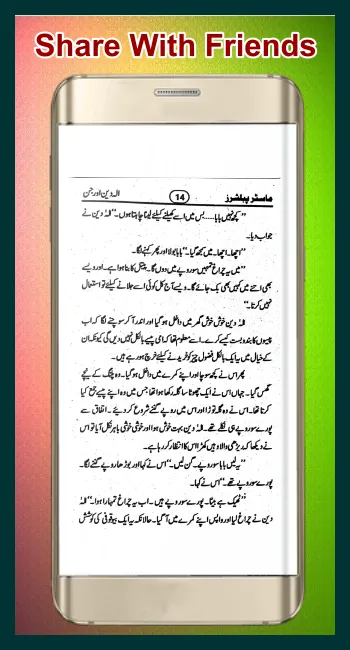 Share With Friends
ماسٹر پبلشرز 14 الہ دین اور جن
”کچھ نہیں بابا.....بس میں اسے کھیلنے کیلئے لینا چاہتا ہوں۔“ الہٰ دین نے
جواب دیا۔
”اچھا۔ اچھا۔ میں سمجھ گیا۔“ بابا بولا اور پھر کہنے لگا۔
”میں یہ چراغ تمہیں سو روپے میں دوں گا۔ پیتل کا بنا ہوا ہے۔ اور ویسے
بھی اتنے میں کہیں بھی بک جائے گا۔ ویسے آج کل کوئی اسے جلانے کیلئے تو استعمال
نہیں کرتا۔“
الہٰ دین خوش خوش گھر میں داخل ہو گیا اور اندر آ کر سوچنے لگا کہ اب
پیسوں کا بندوبست کیسے کرے۔ اسے معلوم تھا کہ امی پیسے بالکل نہیں دیں گی کیونکہ ان
کے خیال میں یہ ایک بالکل فضول چیز کو خریدنے کیلئے خرچ ہو رہے ہیں۔
پھر اس نے کچھ سوچا اور اپنے کمرے میں داخل ہو گیا۔ وہ پلنگ کے نیچے
گھس گیا۔ جہاں اس نے ایک چھوٹا سا گلہ رکھا ہوا تھا جس میں وہ اپنے پیسے جمع کیا
کرتا تھا۔ اس نے وہ گلہ توڑا اور اس میں روپے گننے شروع کر دیئے۔ اتفاق سے
پورے سو روپے ہی نکلے تھے۔ الہٰ دین بہت خوش ہوا اور خوشی خوشی باہر نکل آیا تو اس
نے دیکھا کہ ریڑھی والا وہیں کھڑا اس کا انتظار کر رہا ہے۔
”یہ لیں بابا سو روپے۔ گن لیں۔“ اس نے کہا اور بوڑھا روپے گننے لگا۔
پورے سو روپے تھے۔“ اس نے کہا۔
”ٹھیک ہے بیٹا۔ پورے سو روپے ہیں۔ اب یہ چراغ تمہارا ہوا۔“ الہٰ
دین نے چراغ لیا اور واپس اپنے کمرے میں آ گیا۔ حالانکہ یہ ایک بیوقوفی کی کوشش